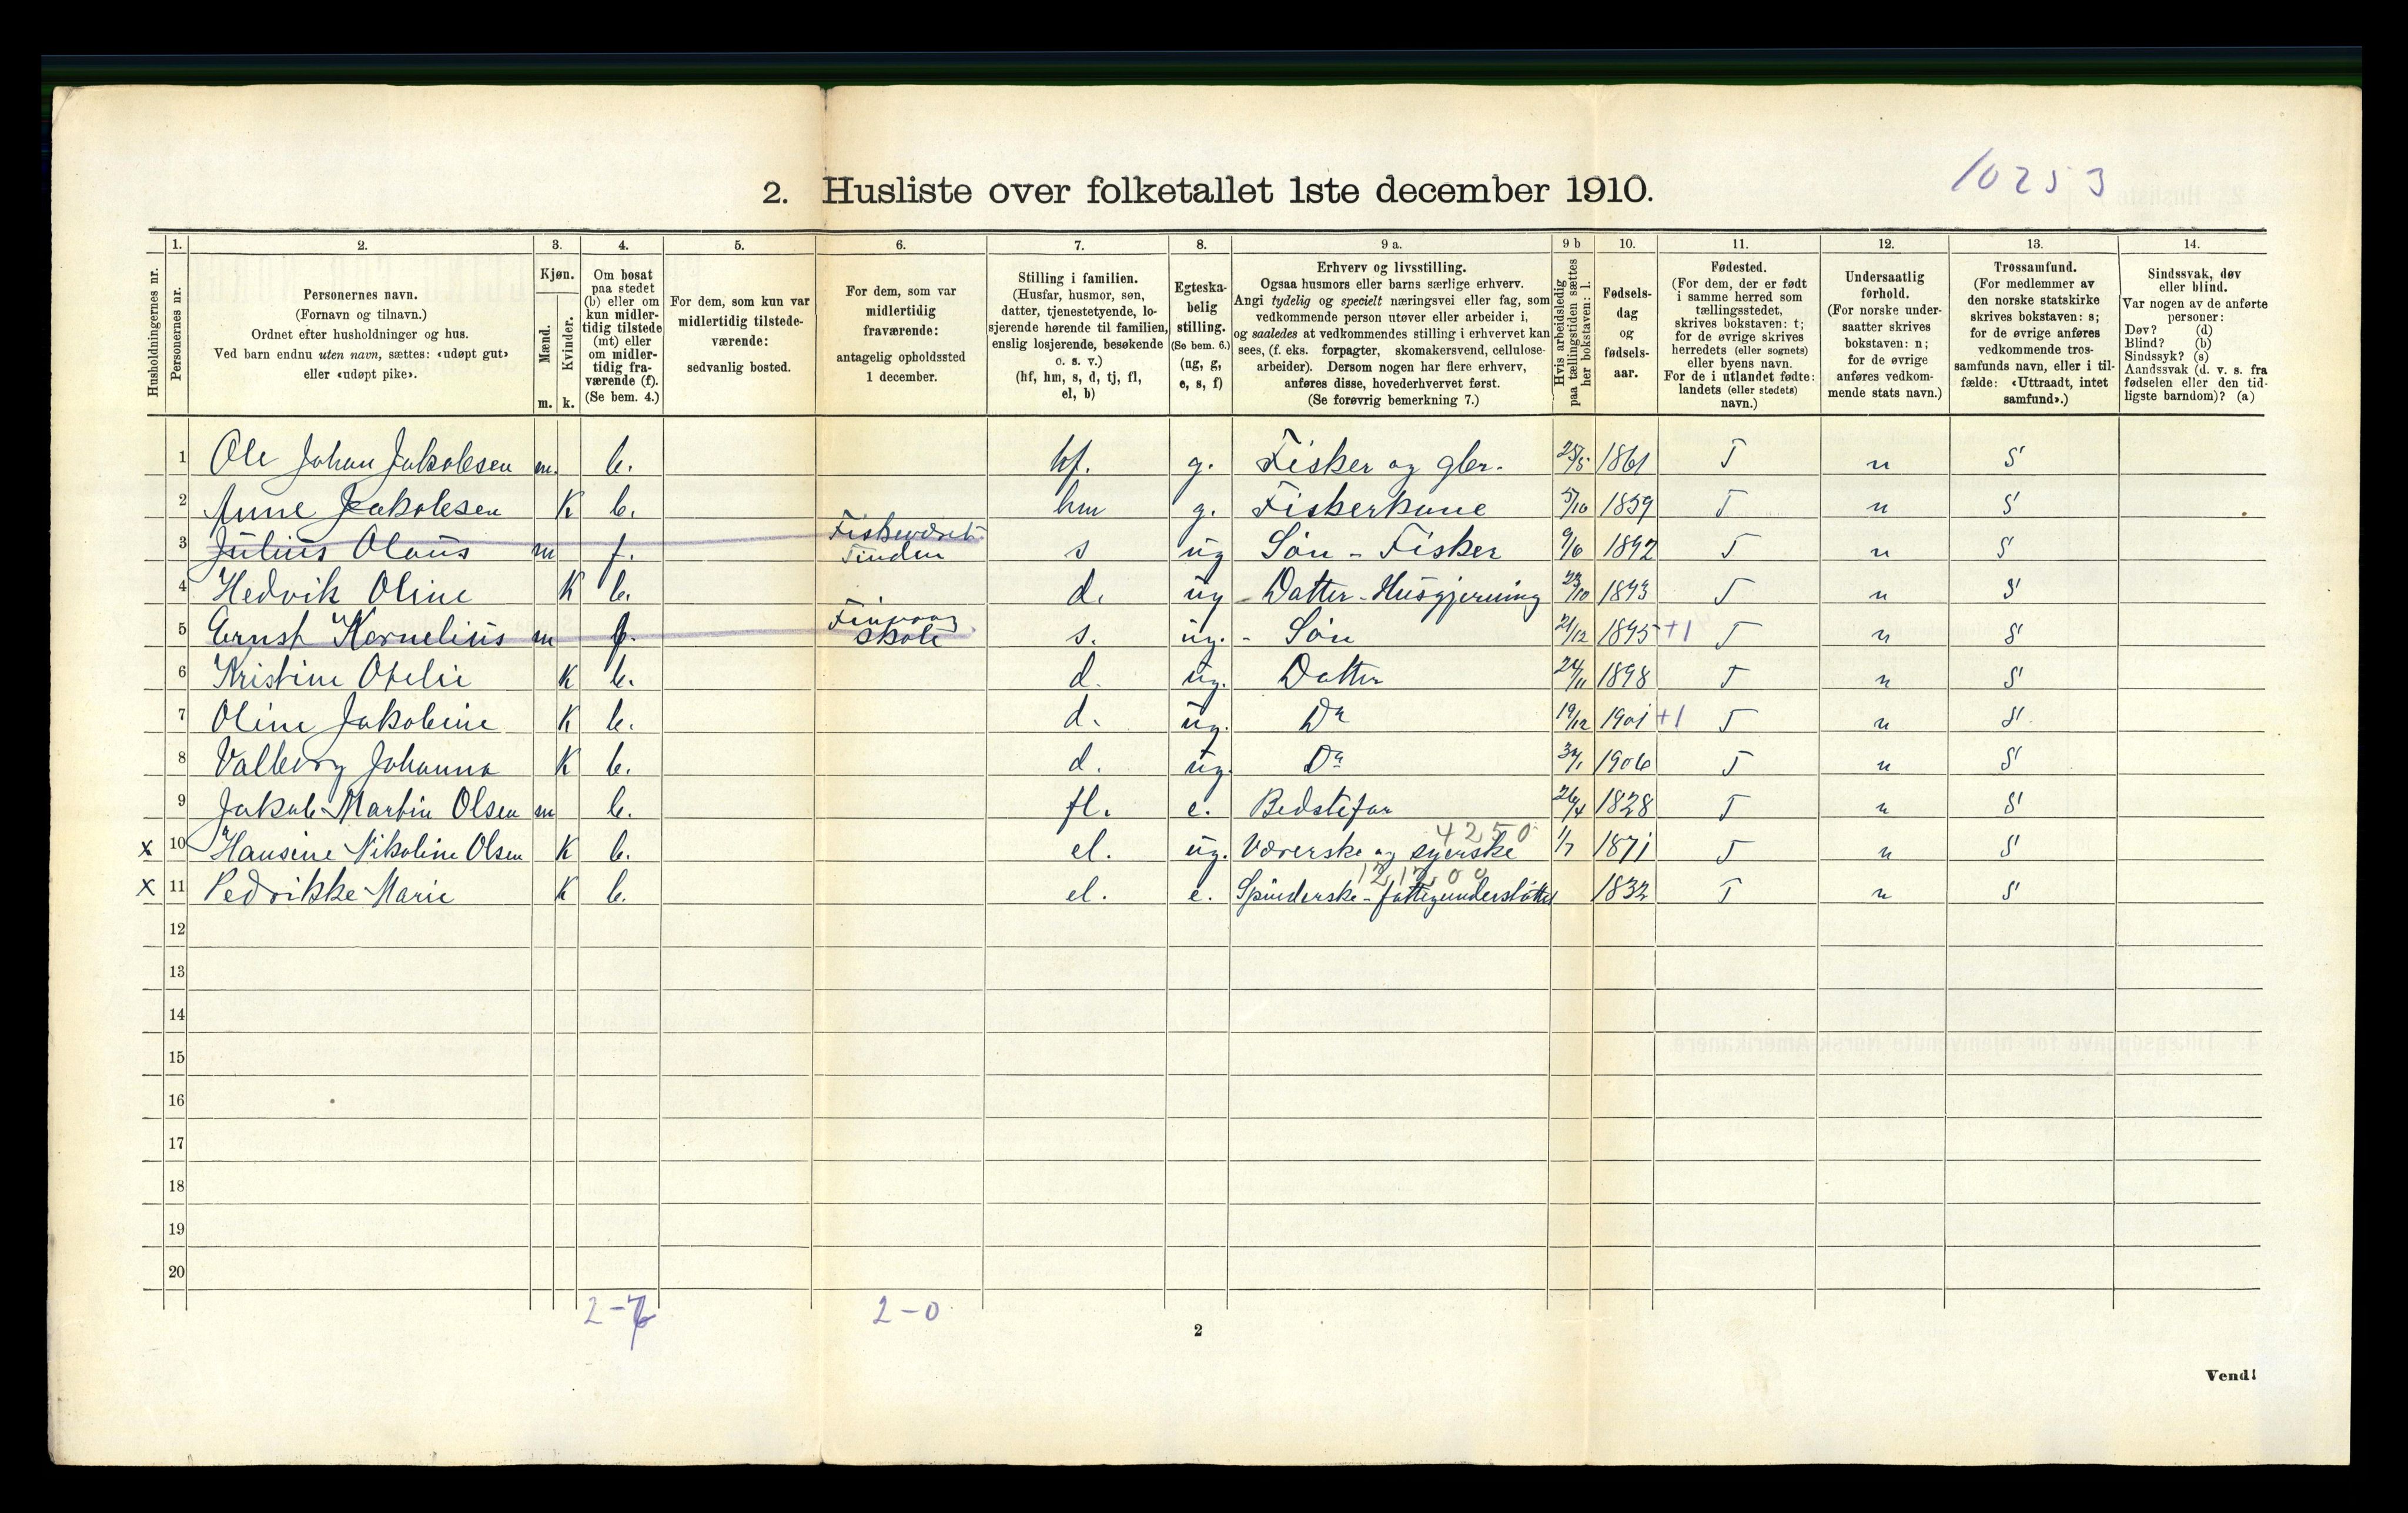 10253
2. Husliste over folketallet 1ste december 1910.
Husholdningernes nr.
1. Personernes nr.
2. Personernes navn.
(Fornavn og tilnavn.)
Ordnet efter husholdninger og hus.
Ved barn endnu uten navn, sættes: «udøpt gut»
eller «udøpt pike».
3. Kjøn.
Mænd. Kvinder.
m. k.
4. Om bosat
paa stedet
(b) eller om
kun midler-
tidig tilstede
(mt) eller
om midler-
tidig fra-
værende (f).
(Se bem. 4.)
5. For dem, som kun var
midlertidig tilstede-
værende:
sedvanlig bosted.
6. For dem, som var
midlertidig
fraværende:
antagelig opholdssted
1 december.
7. Stilling i familien.
(Husfar, husmor, søn,
datter, tjenestetyende, lo-
sjerende hørende til familien,
enslig losjerende, besøkende
o. s. v.)
(hf, hm, s, d, tj, fl,
el, b)
8. Egteska-
belig
stilling.
(Se bem. 6.)
(ug, g,
e, s, f)
9 a. Erhverv og livsstilling.
Ogsaa husmors eller barns særlige erhverv.
Angi tydelig og specielt næringsvei eller fag, som
vedkommende person utøver eller arbeider i,
og saaledes at vedkommendes stilling i erhvervet kan
sees, (f. eks. forpagter, skomakersvend, cellulose-
arbeider). Dersom nogen har flere erhverv,
anføres disse, hovederhvervet først.
(Se forøvrig bemerkning 7.)
9 b Hvis arbeidsledig
paa tællingstiden sættes
her bokstaven: l.
10. Fødsels-
dag
og
fødsels-
aar.
11. Fødested.
(For dem, der er født
i samme herred som
tællingsstedet,
skrives bokstaven: t;
for de øvrige skrives
herredets (eller sognets)
eller byens navn.
For de i utlandet fødte:
landets (eller stedets)
navn.)
12. Undersaatlig
forhold.
(For norske under-
saatter skrives
bokstaven: n;
for de øvrige
anføres vedkom-
mende stats navn.)
13. Trossamfund.
(For medlemmer av
den norske statskirke
skrives bokstaven: s;
for de øvrige anføres
vedkommende tros-
samfunds navn, eller i til-
fælde: «Uttraadt, intet
samfund».)
14. Sindssvak, døv
eller blind.
Var nogen av de anførte
personer:
Døv? (d)
Blind? (b)
Sindssyk? (s)
Aandssvak (d. v. s. fra
fødselen eller den tid-
ligste barndom)? (a)
1 Ole Johan Jakobsen m. b. hf. g. Fisker og gbr. 25/5 1861 T n S
2 Anne Jakobsen K b. hm g. Fiskerkone 5/10 1859 T n S
3 Julius Olaus m f. Fiskeværet Tinden s ug Søn - Fisker 9/6 1892 T n S
4 Hedvik Oline K b. d. ug - Datter - Husgjerning 23/10 1893 T n S
5 Ernst Kornelius m f. Finvaag Skole s. ug. - Søn 21/12 1895 +1 T n S
6 Kristine Otelie K b. d. ug. Datter 24/11 1898 T n S
7 Oline Jakobine K b. d. ug. Do 19/12 1901 +1 T n S
8 Valborg Johanna K b. d. ug. Do 1906 T n S
9 Jakob Martin Olsen m b. fl. e. Bedstefar 26/4 1828 T n S
x 10 Hansine Nikoline Olsen K b. el. ug. Væverske og syerske 4250 1/7 1871 T n S
x 11 Pedrikke Marie K b. el. e. Spinderske - fattigunderstøttet 1832 T n S
12
13
14
15
16
17
18
19
20
2-0
2
Vend!